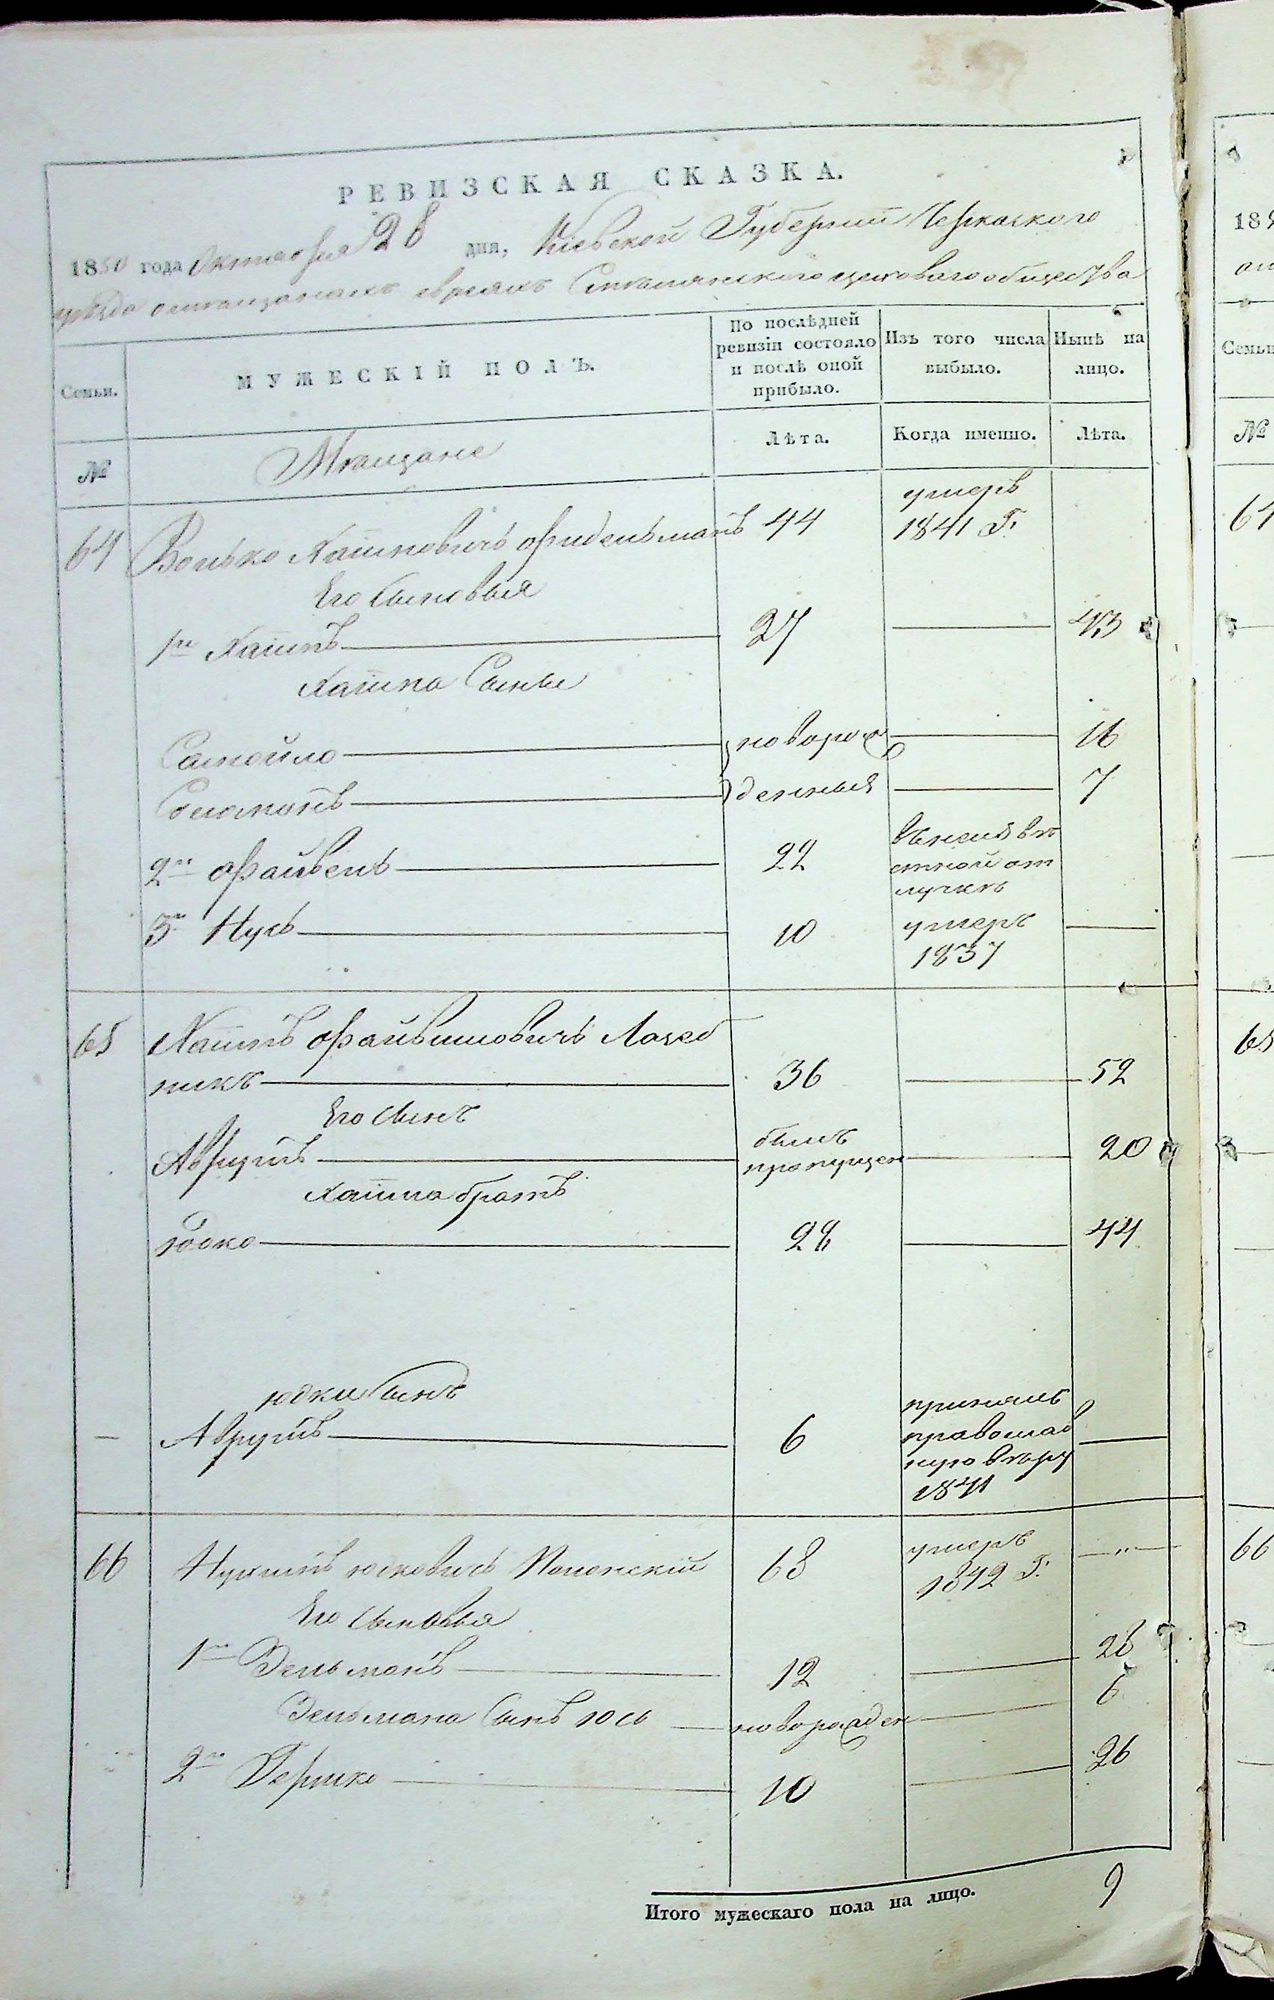 РЕВИЗСКАЯ СКАЗКА.
1850 года Октября 28 дня, Кіевской Губерніи Черкаского
уѣзда о мещанахъ евреяхъ Смелянского общества
Семьи.
МУЖЕСКІЙ ПОЛЪ.
По послѣдней ревизіи состояло и послѣ оной прибыло.
Изъ того числа выбыло.
Нынѣ на лицо.
№
Мещане
Лѣта.
Когда именно.
Лѣта.
64 Волько Хаимовичъ Фидельманъ 44 умеръ 1841 Г.
Его Сыновья
1й Хаимъ 27 43
Хаима Сыны
Самойло новорож 16
Соломонъ денныя 7
2й Файвель 22 въ неизвѣстной отлучкѣ
3й Нусь 10 умеръ 1837
65 Хаимъ Файвишовичъ Лазебникъ 36 52
Его Сынъ
Аврумъ былъ пропущен 20
Хаима братъ
Юдко 28 44
Юдки Сынъ
— Аврумъ 6 принялъ православную вѣру 1841
66 Нухимъ Юдковичъ Полонскій 68 умеръ 1842 Г. — " —
Его Сыновья
1й Зельманъ 12 28
Зельмана Сынъ Юсь новорожден 6
2й Гершко 10 26
Итого мужескаго пола на лицо. 9
184
Семьи
№
64
65
66